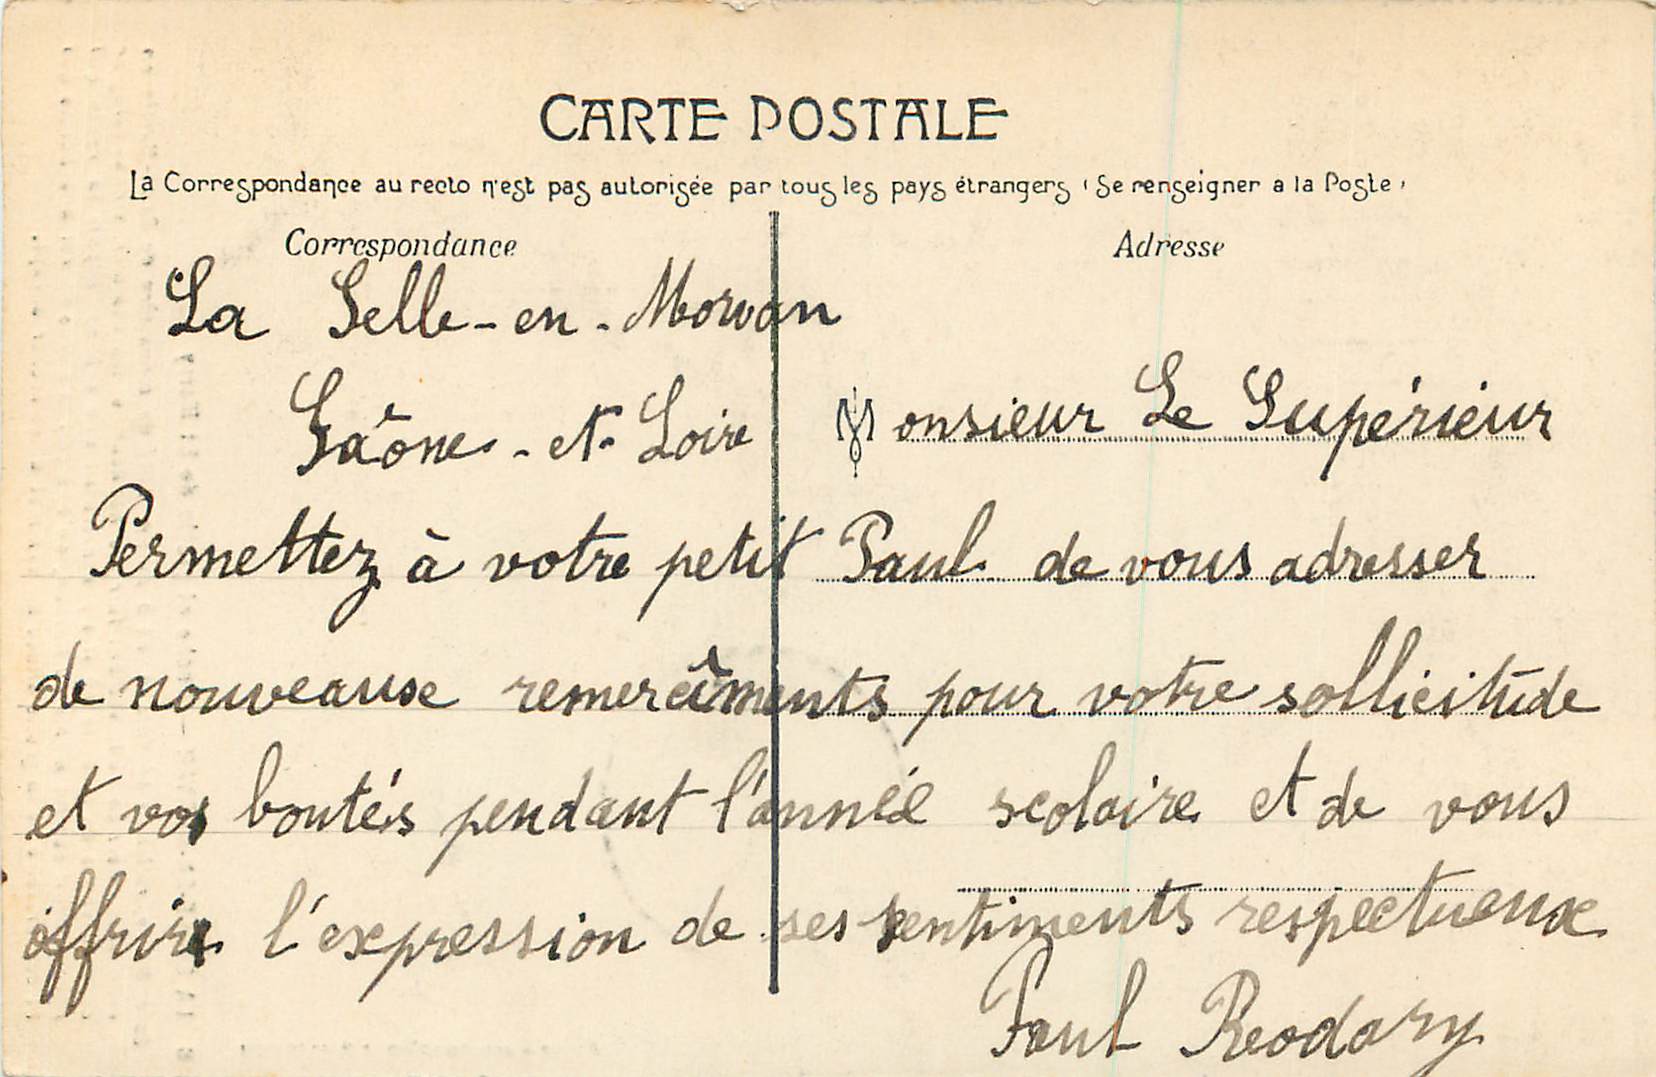 CARTE POSTALE
La Correspondance au recto n'est pas autorisée par tous les pays étrangers (Se renseigner a la Poste)
Correspondance
Adresse
La Selle-en-Morvan
Saône-et-Loire
Monsieur Le Supérieur
Permettez à votre petit Paul de vous adresser
de nouveaux remerciments pour votre sollicitude
et vos bontés pendant l'année scolaire et de vous
offrir l'expression de ses sentiments respectueux
Paul Reodary